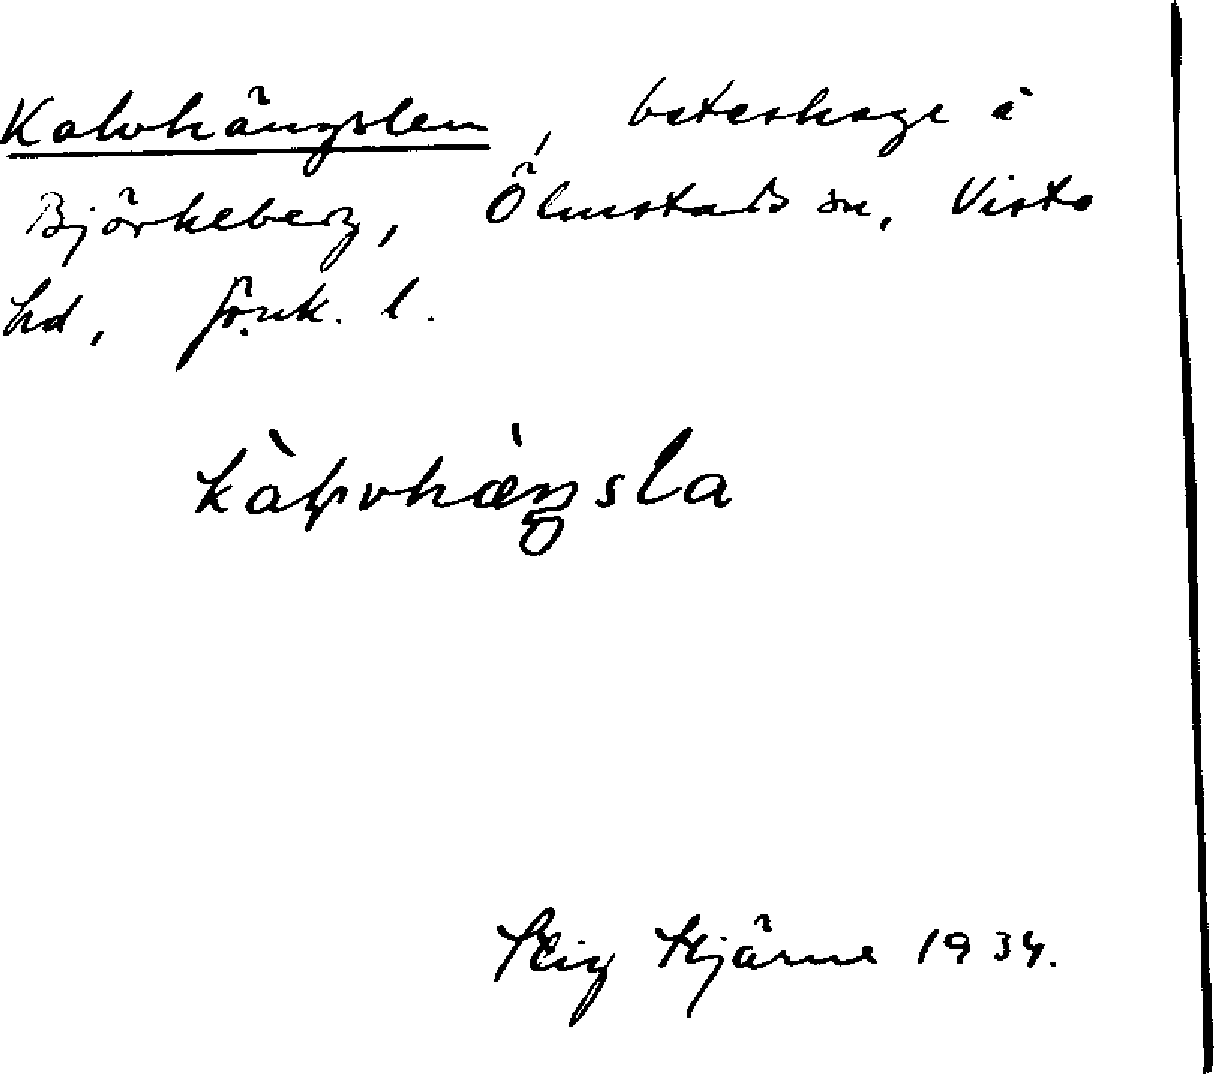 Kalvhängslen, beteshage å
Björkeberg, Ölmstads sn, Vista
hd, Jönk. l.
kàḷvhæ̀ŋsla
Stig Hjärne 1934.